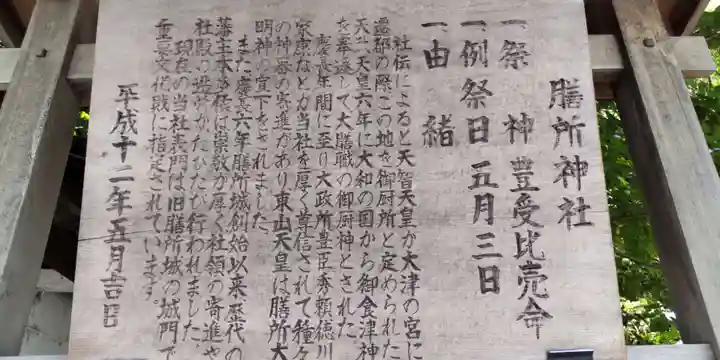 膳所神社
一、祭神 豊受比売命
一、例祭日 五月三日
一、由緒
社伝によると天智天皇が大津の宮に
遷都の際この地を御厨所と定められた
天武天皇六年に大和の国から御食津神
を奉遷して大膳職の御厨神とされた
慶長年間に至り大政所豊臣秀頼徳川
家康などが当社を厚く尊信されて種々
の神器の寄進があり東山天皇は膳所大
明神の宣下をされました。
また慶長六年膳所城創始以来歴代の
藩主本多侯は崇敬が厚く社領の寄進や
社殿の造営がたびたび行われました
現在の当社表門は旧膳所城の城門で
重要文化財に指定されています。
平成十二年五月吉日